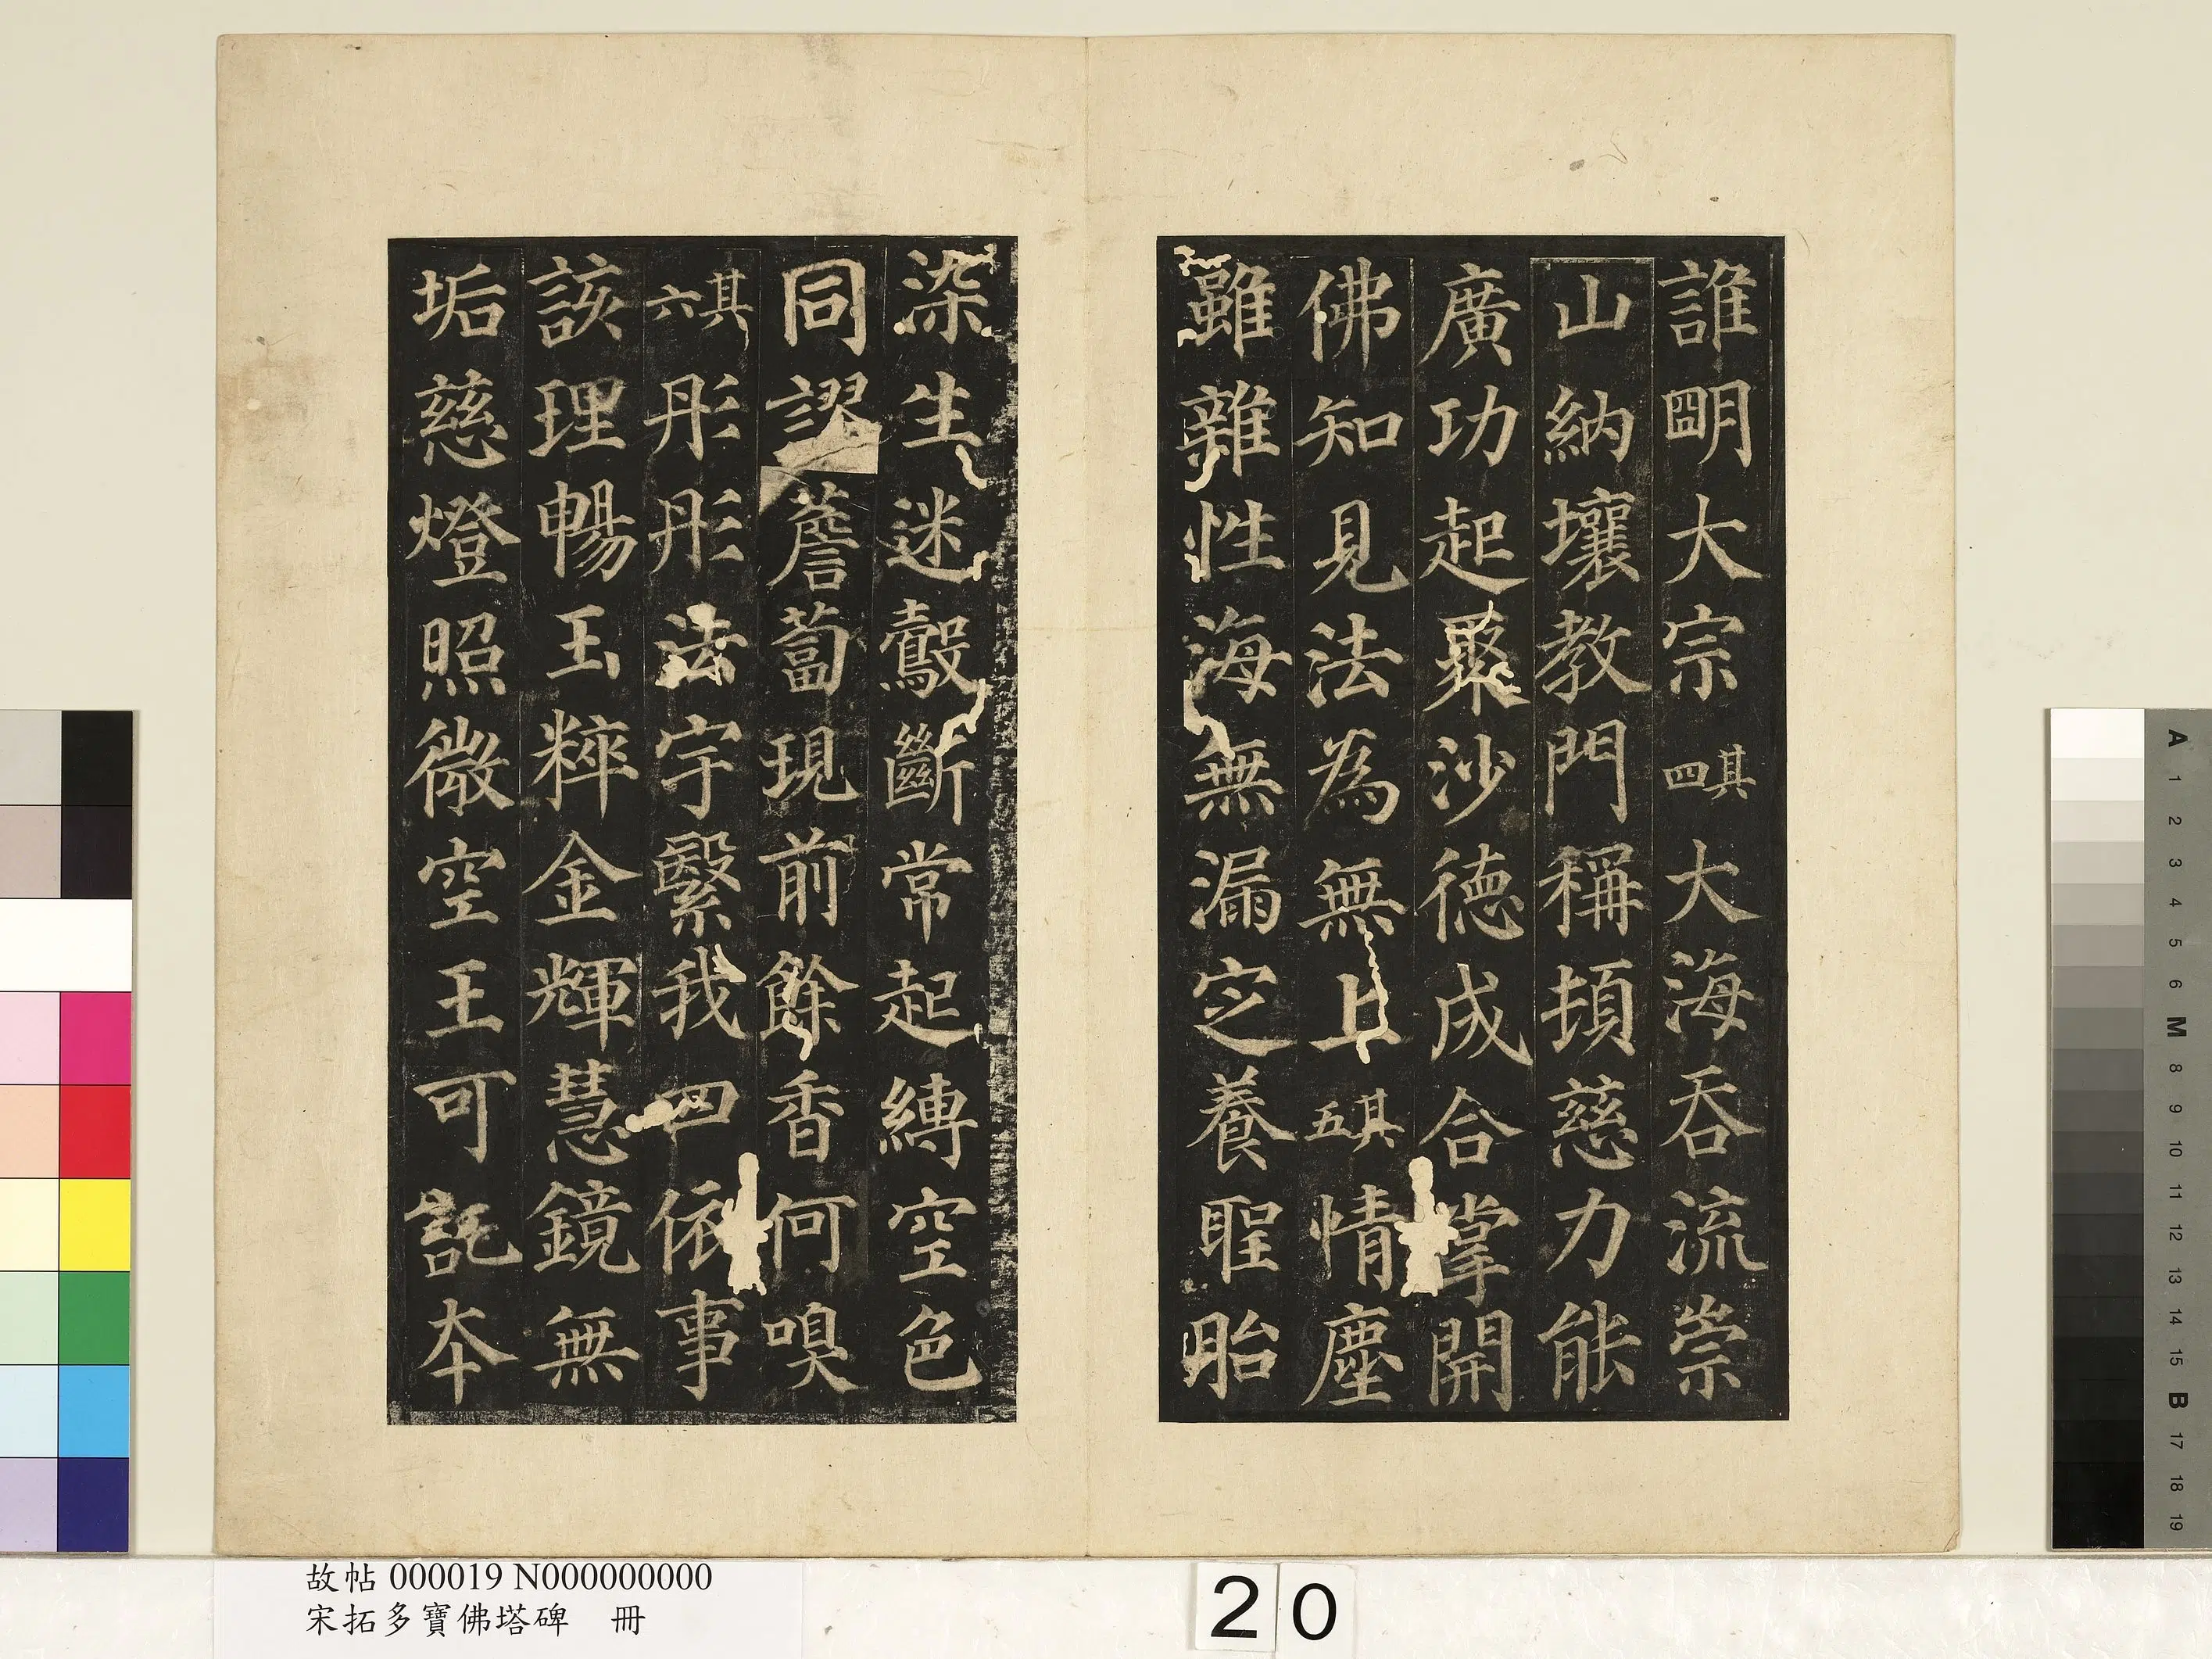 誰明大宗其四大海吞流崇
山納壤教門稱頓慈力能
廣功起聚沙德成合掌開
佛知見法為無上其五情塵
雖雜性海無漏定養聖胎
染生迷鷇斷常起縛空色
同謬薝蔔現前餘香何嗅
其六彤彤法宇繄我四依事
該理暢玉粹金輝慧鏡無
垢慈燈照微空王可託本
故帖 000019 N000000000
宋拓多寶佛塔碑 冊
20
A 1 2 3 4 5 6 M 8 9 10 11 12 13 14 15 B 17 18 19